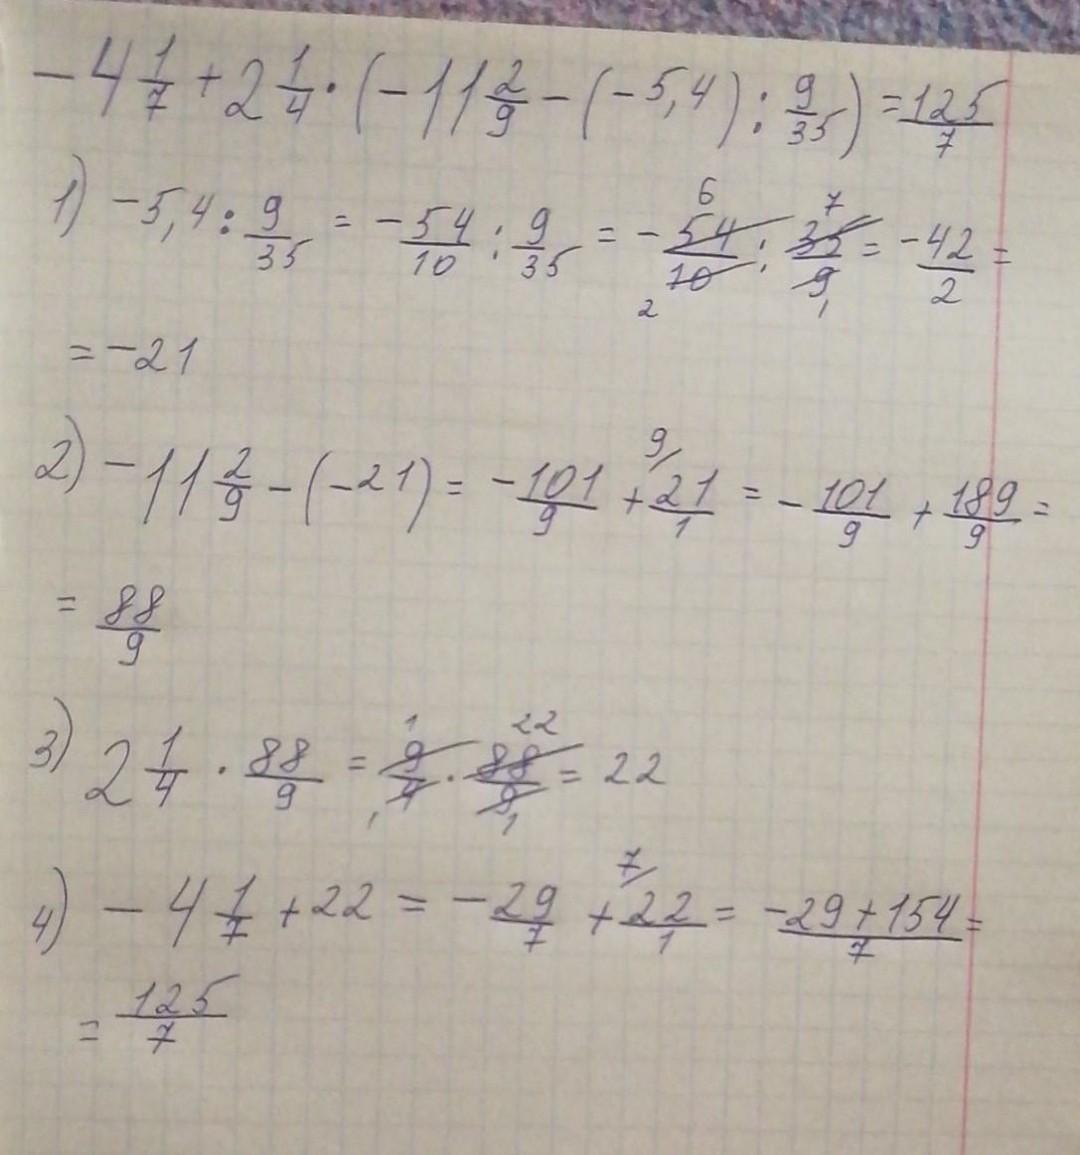 -4 1/7 + 2 1/4 · (-11 2/9 - (-5,4) : 9/35) = 125/7
1) -5,4 : 9/35 = -54/10 : 9/35 = - 6 54/10 2 : 7 35/9 1 = -42/2 =
= -21
2) -11 2/9 - (-21) = -101/9 + 9/ 21/1 = -101/9 + 189/9 =
= 88/9
3) 2 1/4 · 88/9 = 1 9/4 1 · 22 88/9 1 = 22
4) -4 1/7 + 22 = -29/7 + 7/ 22/1 = -29+154/7 =
= 125/7